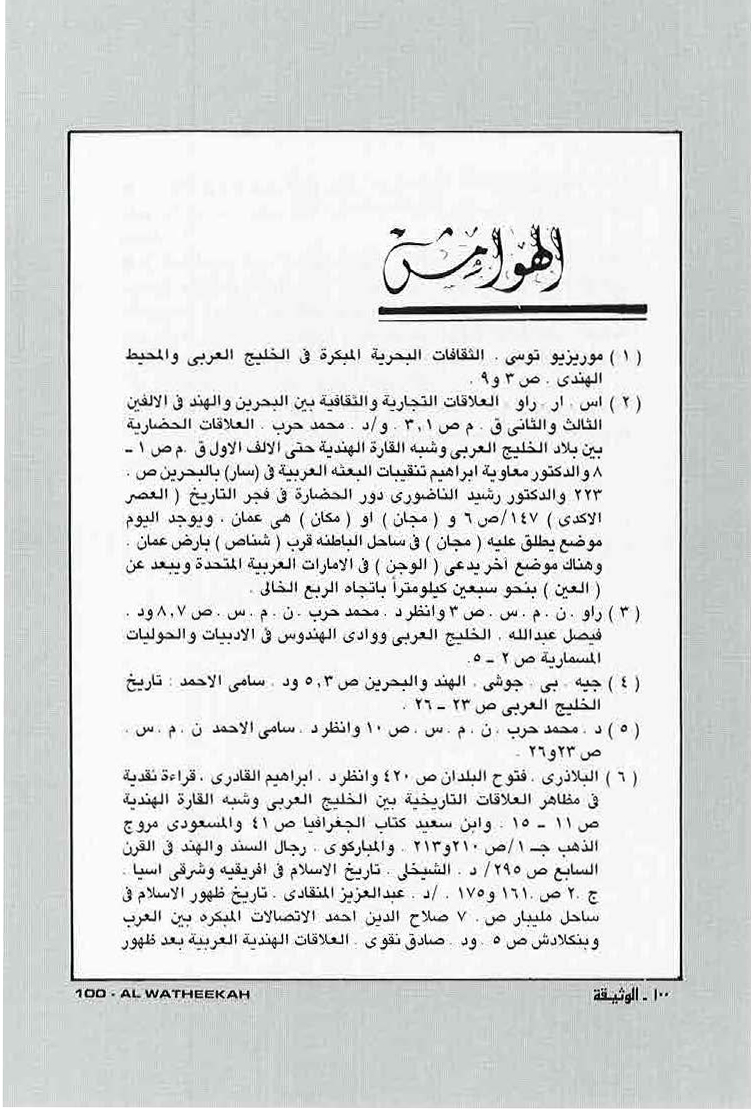 الهوامش
( ١ ) موريزيو توسى . الثقافات البحرية المبكرة فى الخليج العربى والمحيط
الهندى . ص ٣ و٩ .
( ٢ ) اس . ار . راو . العلاقات التجارية والثقافية بين البحرين والهند فى الالفين
الثالث والثانى ق . م ص ٣,١ . و/د . محمد حرب . العلاقات الحضارية
بين بلاد الخليج العربى وشبه القارة الهندية حتى الالف الاول ق .م ص ١ –
٨ والدكتور معاوية ابراهيم تنقيبات البعثه العربية فى (سار) بالبحرين ص .
٢٢٣ والدكتور رشيد الناضورى دور الحضارة فى فجر التاريخ ( العصر
الاكدى ) ١٤٧/ص ٦ و ( مجان ) او ( مكان ) هى عمان . ويوجد اليوم
موضع يطلق عليه ( مجان ) فى ساحل الباطنه قرب ( شناص ) بارض عمان .
وهناك موضع آخر يدعى ( الوجن ) فى الامارات العربية المتحدة ويبعد عن
( العين ) بنحو سبعين كيلومتراً باتجاه الربع الخالى .
( ٣ ) راو . ن . م . س . ص ٣ وانظر د . محمد حرب . ن . م . س . ص ٨,٧ ود .
فيصل عبدالله . الخليج العربى ووادى الهندوس فى الادبيات والحوليات
المسمارية ص ٢ – ٥.
( ٤ ) جيه . بى . جوشى . الهند والبحرين ص ٥,٣ ود . سامى الاحمد : تاريخ
الخليج العربى ص ٢٣ – ٢٦ .
( ٥ ) د . محمد حرب . ن . م . س . ص ١٠ وانظر د . سامى الاحمد ن . م . س .
ص ٢٣و٢٦ .
( ٦ ) البلاذرى . فتوح البلدان ص ٤٢٠ وانظر د . ابراهيم القادرى . قراءة نقدية
فى مظاهر العلاقات التاريخية بين الخليج العربى وشبه القارة الهندية
ص ١١ – ١٥ . وابن سعيد كتاب الجغرافيا ص ٤١ والمسعودى مروج
الذهب جـ ١/ص ٢١٠و٢١٣ . والمباركوى . رجال السند والهند فى القرن
السابع ص ٢٩٥/ د . الشيخلى . تاريخ الاسلام فى افريقيه وشرقى اسيا .
ج . ٢ ص .١٦١ و١٧٥ . /د . عبدالعزيز المنقادى . تاريخ ظهور الاسلام فى
ساحل مليبار ص . ٧ صلاح الدين احمد الاتصالات المبكره بين العرب
وبنكلادش ص ٥ . ود . صادق نقوى . العلاقات الهندية العربية بعد ظهور
100 - AL WATHEEKAH
١٠٠ - الوثيـقة